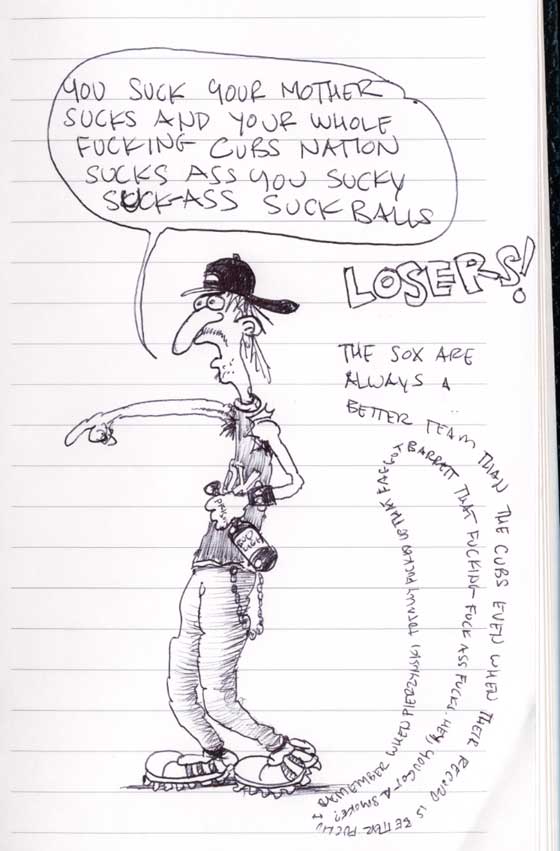 YOU SUCK YOUR MOTHER
SUCKS AND YOUR WHOLE
FUCKING CUBS NATION
SUCKS ASS YOU SUCKY
SUCK-ASS SUCK BALLS
LOSERS!
THE SOX ARE
ALWAYS A
BETTER TEAM THAN THE CUBS EVEN WHEN THEIR RECORD IS BETTER. FUCKIN I REMEMBER WHEN PIERZYNSKI TOTALLY FUCKED UP THAT FAGGOT BARRETT THAT FUCKING FUCK ASS FUCK. HEY, YOU GOT A SMOKE?